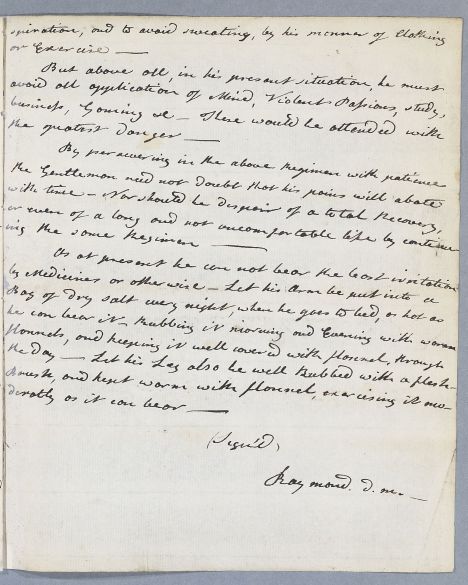 spiration, and to avoid sweating, by his manner of Clothing
or Exercise —
But above all, in his present situation, he must
avoid all application of Mind, Violent Passions, study,
business, Gaming &c — These would be attended with
the greatest Danger —
By persevering in the above Regimen with patience
the Gentleman need not Doubt that his pains will abate
with time — Nor should he Despair of a total Recovery,
or even of a long and not uncomfortable life by continu-
ing the same Regimen —
As at present he can not bear the least irritation
by Medicines or otherwise — Let his Arm be put into a
Bag of dry salt every night, when he goes to bed, as hot as
he can bear it — Rubbing it morning and Evening with warm
flannels, and keeping it well covered with flannel, through
the Day — Let his Leg also be well Rubbed with a flesh-
Brush, and kept warm with flannel, exercising it mo-
derately as it can bear —
(Signed)
Raymond. d. m. —